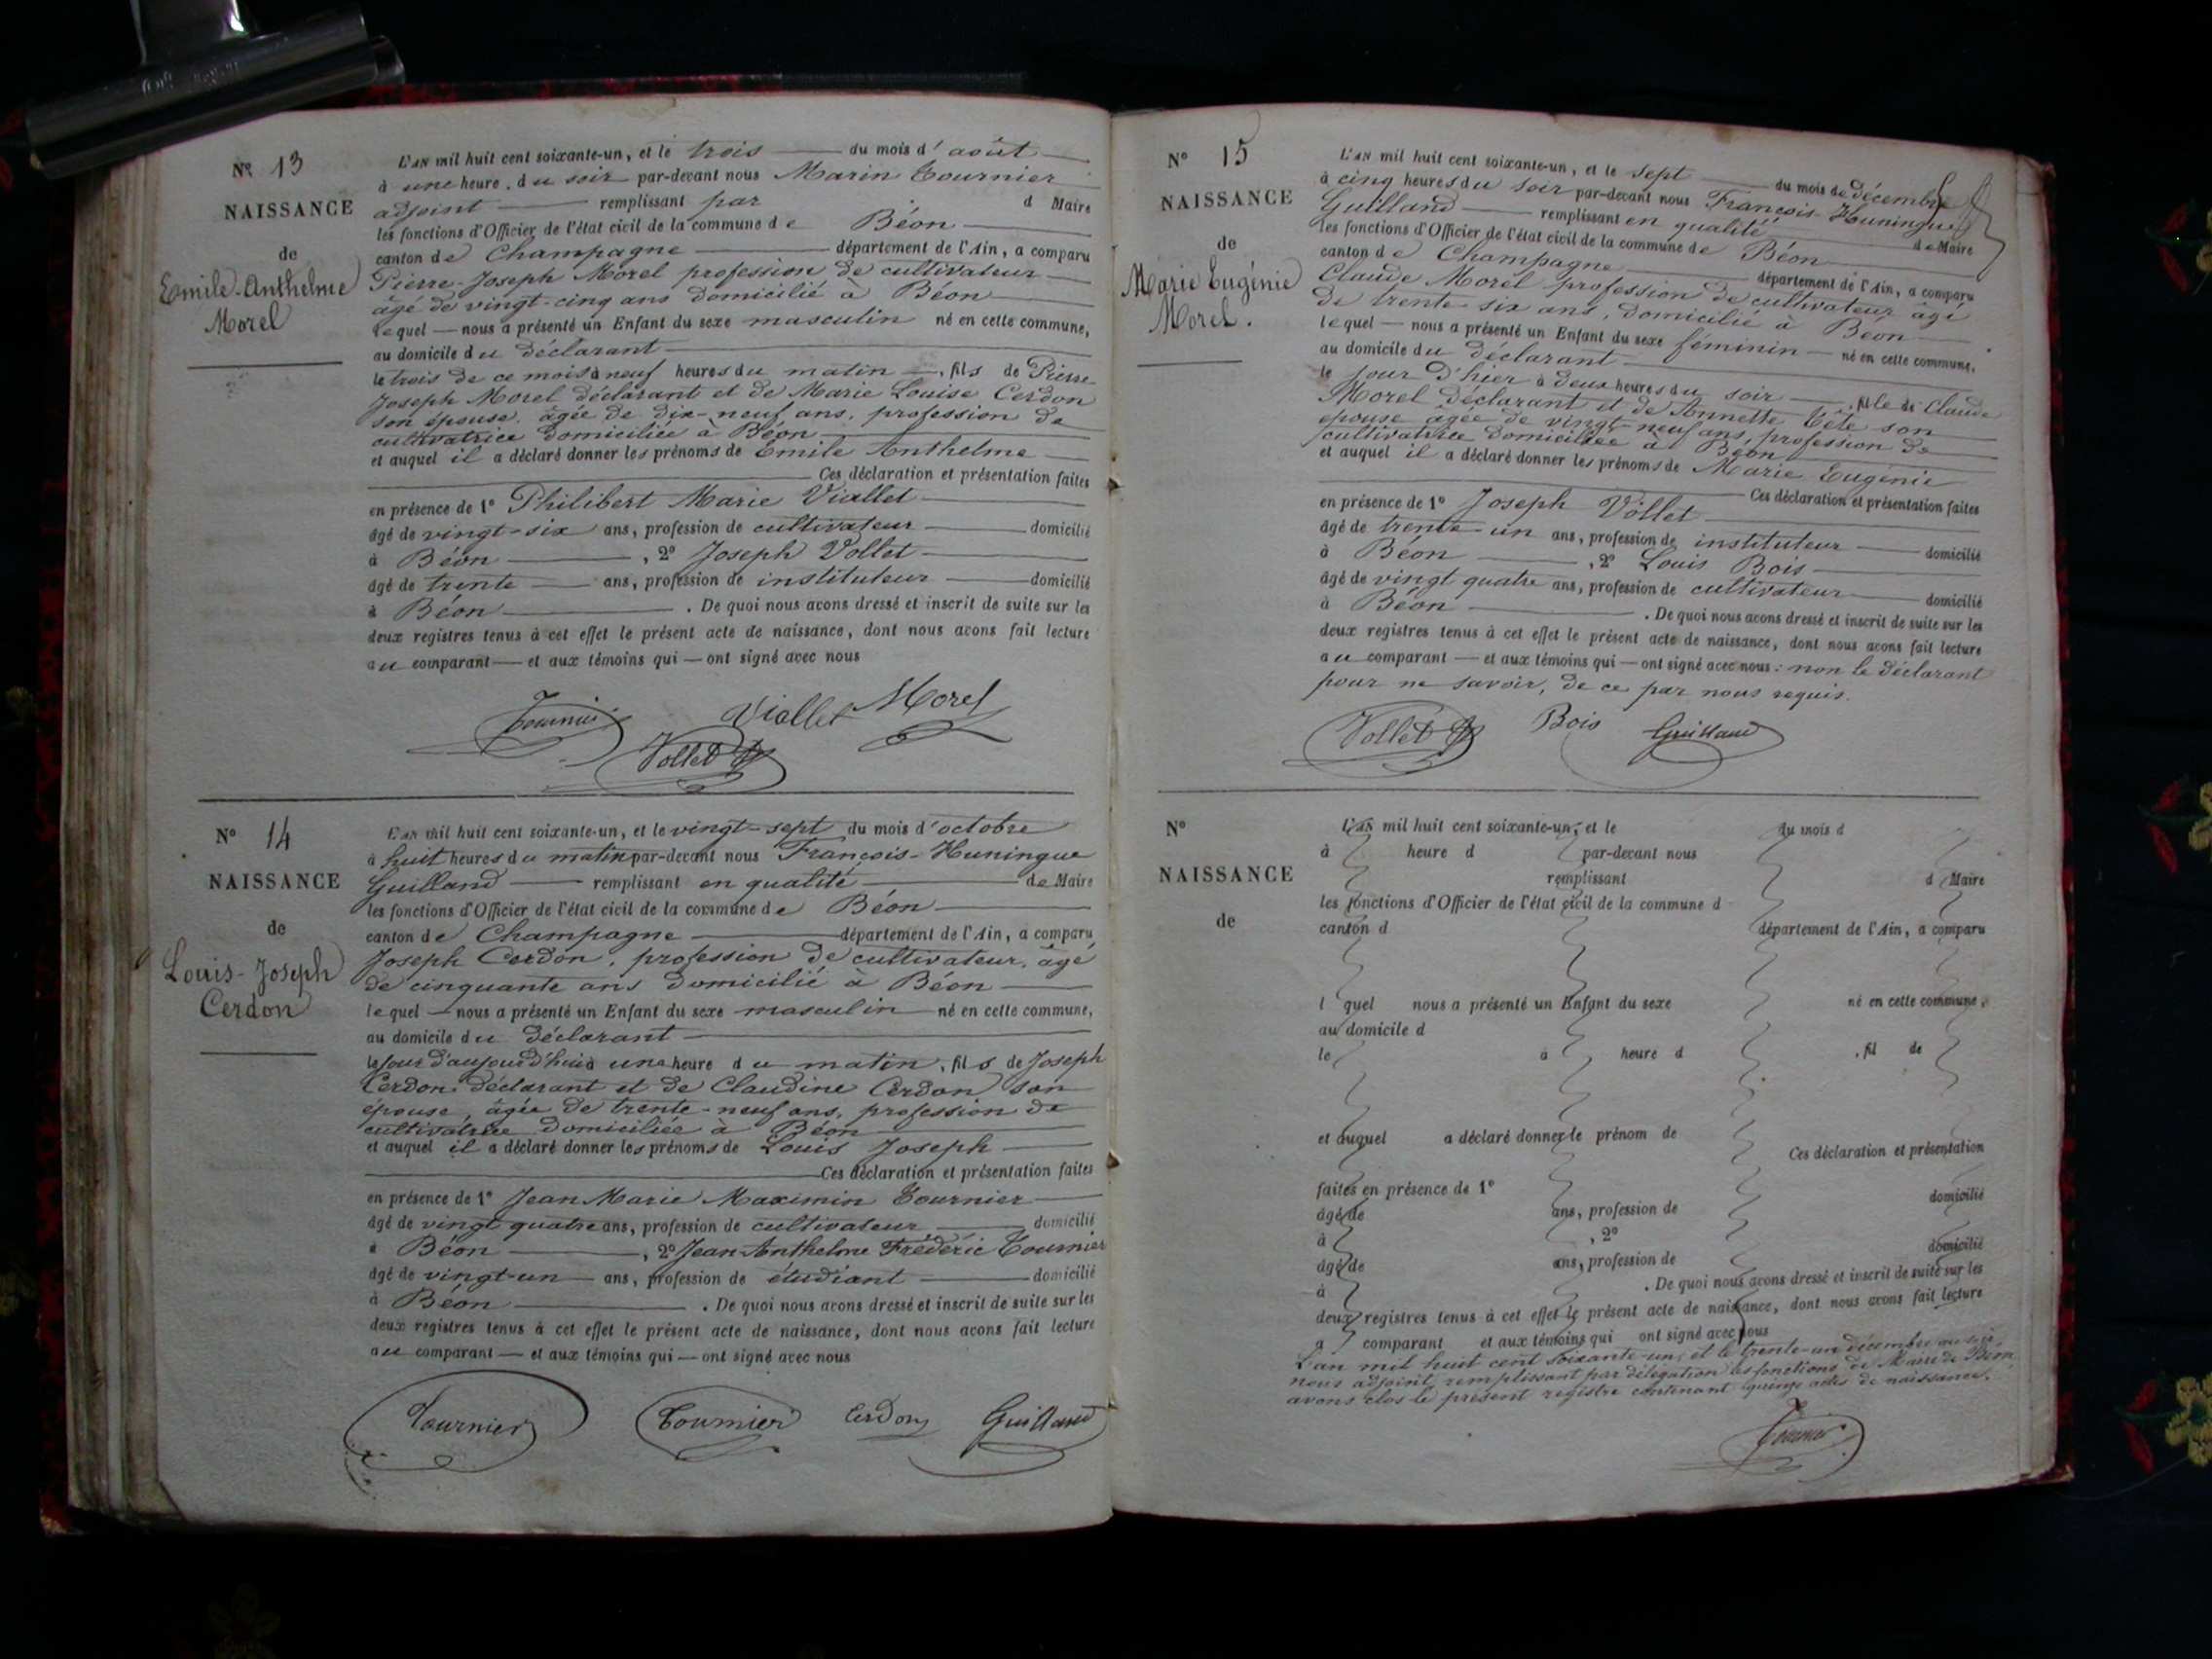 Nº 13
NAISSANCE
de
Emile-Anthelme
Morel
L'AN mil huit cent soixante-un, et le trois du mois d'août
à une heure, du soir par-devant nous Marin Tournier
adjoint remplissant par d Maire
les fonctions d'Officier de l'état civil de la commune de Béon
canton de Champagne département de l'Ain, a comparu
Pierre-Joseph Morel profession de cultivateur
âgé de vingt-cinq ans domicilié à Béon
lequel — nous a présenté un Enfant du sexe masculin né en cette commune,
au domicile du déclarant
le trois de ce mois à neuf heures du matin, fils de Pierre
Joseph Morel déclarant et de Marie Louise Cerdon
son épouse, âgée de dix-neuf ans, profession de
cultivatrice domiciliée à Béon
et auquel il a déclaré donner les prénoms de Emile Anthelme
Ces déclaration et présentation faites
en présence de 1º Philibert Marie Viallet
âgé de vingt-six ans, profession de cultivateur domicilié
à Béon, 2º Joseph Vollet
âgé de trente ans, profession de instituteur domicilié
à Béon. De quoi nous avons dressé et inscrit de suite sur les
deux registres tenus à cet effet le présent acte de naissance, dont nous avons fait lecture
au comparant — et aux témoins qui — ont signé avec nous
Tournier Viallet Morel
Vollet
Nº 14
NAISSANCE
de
Louis-Joseph
Cerdon
L'AN mil huit cent soixante-un, et le vingt-sept du mois d'octobre
à huit heures du matin par-devant nous François-Huningue
Guilland remplissant en qualité de Maire
les fonctions d'Officier de l'état civil de la commune de Béon
canton de Champagne département de l'Ain, a comparu
Joseph Cerdon, profession de cultivateur, âgé
de cinquante ans domicilié à Béon
lequel — nous a présenté un Enfant du sexe masculin né en cette commune,
au domicile du déclarant
le jour d'aujourd'hui à une heure du matin, fils de Joseph
Cerdon déclarant et de Claudine Cerdon son
épouse, âgée de trente-neuf ans, profession de
cultivatrice domiciliée à Béon
et auquel il a déclaré donner les prénoms de Louis Joseph
Ces déclaration et présentation faites
en présence de 1º Jean Marie Maximin Tournier
âgé de vingt quatre ans, profession de cultivateur domicilié
à Béon, 2º Jean-Anthelme Frédéric Tournier
âgé de vingt-un ans, profession de étudiant domicilié
à Béon. De quoi nous avons dressé et inscrit de suite sur les
deux registres tenus à cet effet le présent acte de naissance, dont nous avons fait lecture
au comparant — et aux témoins qui — ont signé avec nous
Tournier Tournier Cerdon Guilland
Nº 15
NAISSANCE
de
Marie Eugénie
Morel.
L'AN mil huit cent soixante-un, et le sept du mois de décembre
à cinq heures du soir par-devant nous François-Huningue
Guilland remplissant en qualité de Maire
les fonctions d'Officier de l'état civil de la commune de Béon
canton de Champagne département de l'Ain, a comparu
Claude Morel profession de cultivateur âgé
de trente six ans, domicilié à Béon
lequel — nous a présenté un Enfant du sexe féminin — né en cette commune,
au domicile du déclarant
le jour d'hier à deux heures du soir, fille de Claude
Morel déclarant et de Annette Tête son
épouse âgée de vingt-neuf ans, profession de
cultivatrice domiciliée à Béon
et auquel il a déclaré donner les prénoms de Marie Eugénie
Ces déclaration et présentation faites
en présence de 1º Joseph Vollet
âgé de trente-un ans, profession de instituteur domicilié
à Béon, 2º Louis Bois
âgé de vingt quatre ans, profession de cultivateur domicilié
à Béon. De quoi nous avons dressé et inscrit de suite sur les
deux registres tenus à cet effet le présent acte de naissance, dont nous avons fait lecture
au comparant — et aux témoins qui — ont signé avec nous: non le déclarant
pour ne savoir, de ce par nous requis.
Vollet Bois Guilland
Nº
NAISSANCE
de
L'AN mil huit cent soixante-un, et le du mois d
à heure d par-devant nous
remplissant d Maire
les fonctions d'Officier de l'état civil de la commune d
canton d département de l'Ain, a comparu
l quel nous a présenté un Enfant du sexe né en cette commune,
au domicile d
le à heure d , fil de
et auquel a déclaré donner le prénom de
Ces déclaration et présentation
faites en présence de 1º domicilié
âgé de ans, profession de
à , 2º domicilié
âgé de ans, profession de
à . De quoi nous avons dressé et inscrit de suite sur les
deux registres tenus à cet effet le présent acte de naissance, dont nous avons fait lecture
a comparant et aux témoins qui ont signé avec nous
L'an mil huit cent soixante-un, et le trente-un décembre au soir,
nous adjoint, remplissant par délégation les fonctions de Maire de Béon,
avons clos le présent registre contenant quinze actes de naissance.
Tournier